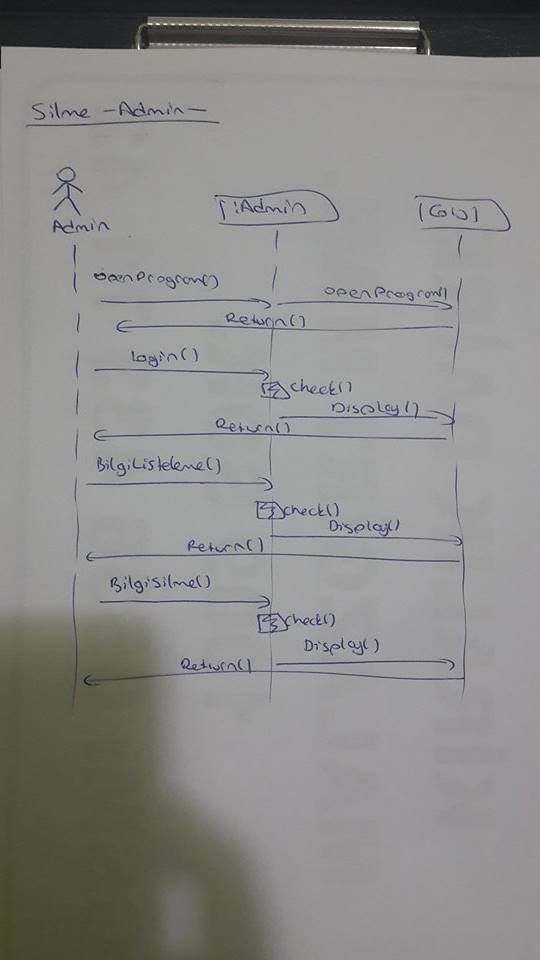 Silme -Admin-
Admin
[:Admin
openProgram()
openProgram()
Return()
Login()
check()
Display()
Return()
BilgiListeleme()
check()
Display()
Return()
BilgiSilme()
check()
Display()
Return()